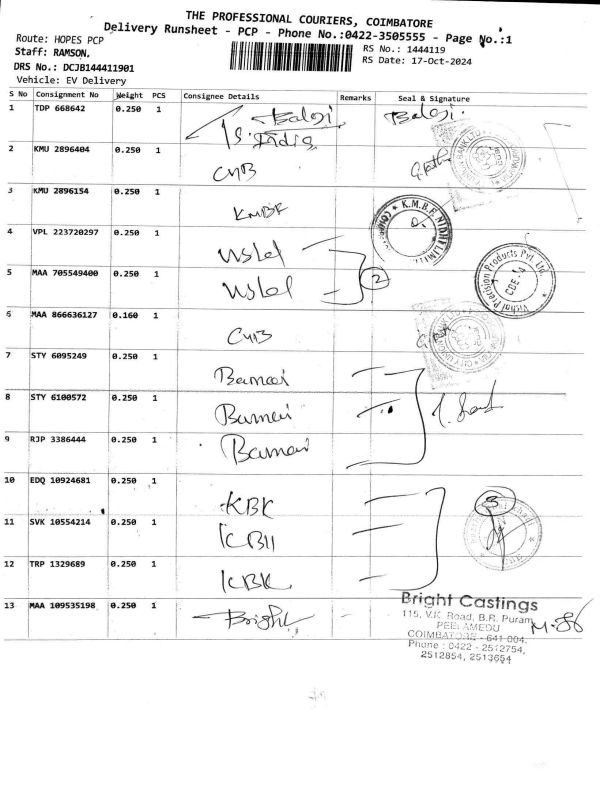 THE PROFESSIONAL COURIERS, COIMBATORE
Delivery Runsheet - PCP - Phone No.:0422-3505555 - Page No.:1
Route: HOPES PCP
RS No.: 1444119
Staff: RAMSON.
RS Date: 17-Oct-2024
DRS No.: DCJB144411901
Vehicle: EV Delivery
S No Consignment No Weight PCS Consignee Details Remarks Seal & Signature
1 TDP 668642 0.250 1 Balaji Balaji.
S. India
2 KMU 2896404 0.250 1 CUB
3 KMU 2896154 0.250 1 KMBF
K.M.B.F. NIDHI LIMITED
4 VPL 223720297 0.250 1
5 MAA 705549400 0.250 1 2
Vishal Precision Products Pvt. Ltd.
CBE-4
6 MAA 866636127 0.160 1 CUB
7 STY 6095249 0.250 1
8 STY 6100572 0.250 1
9 RJP 3386444 0.250 1
10 EDQ 10924681 0.250 1 KBK 3
11 SVK 10554214 0.250 1
12 TRP 1329689 0.250 1 KBK
13 MAA 109535198 0.250 1 Bright
Bright Castings
115, V.K. Road, B.R. Puram,
PEELAMEDU
COIMBATORE - 641 004.
Phone : 0422 - 2512754,
2512854, 2513654